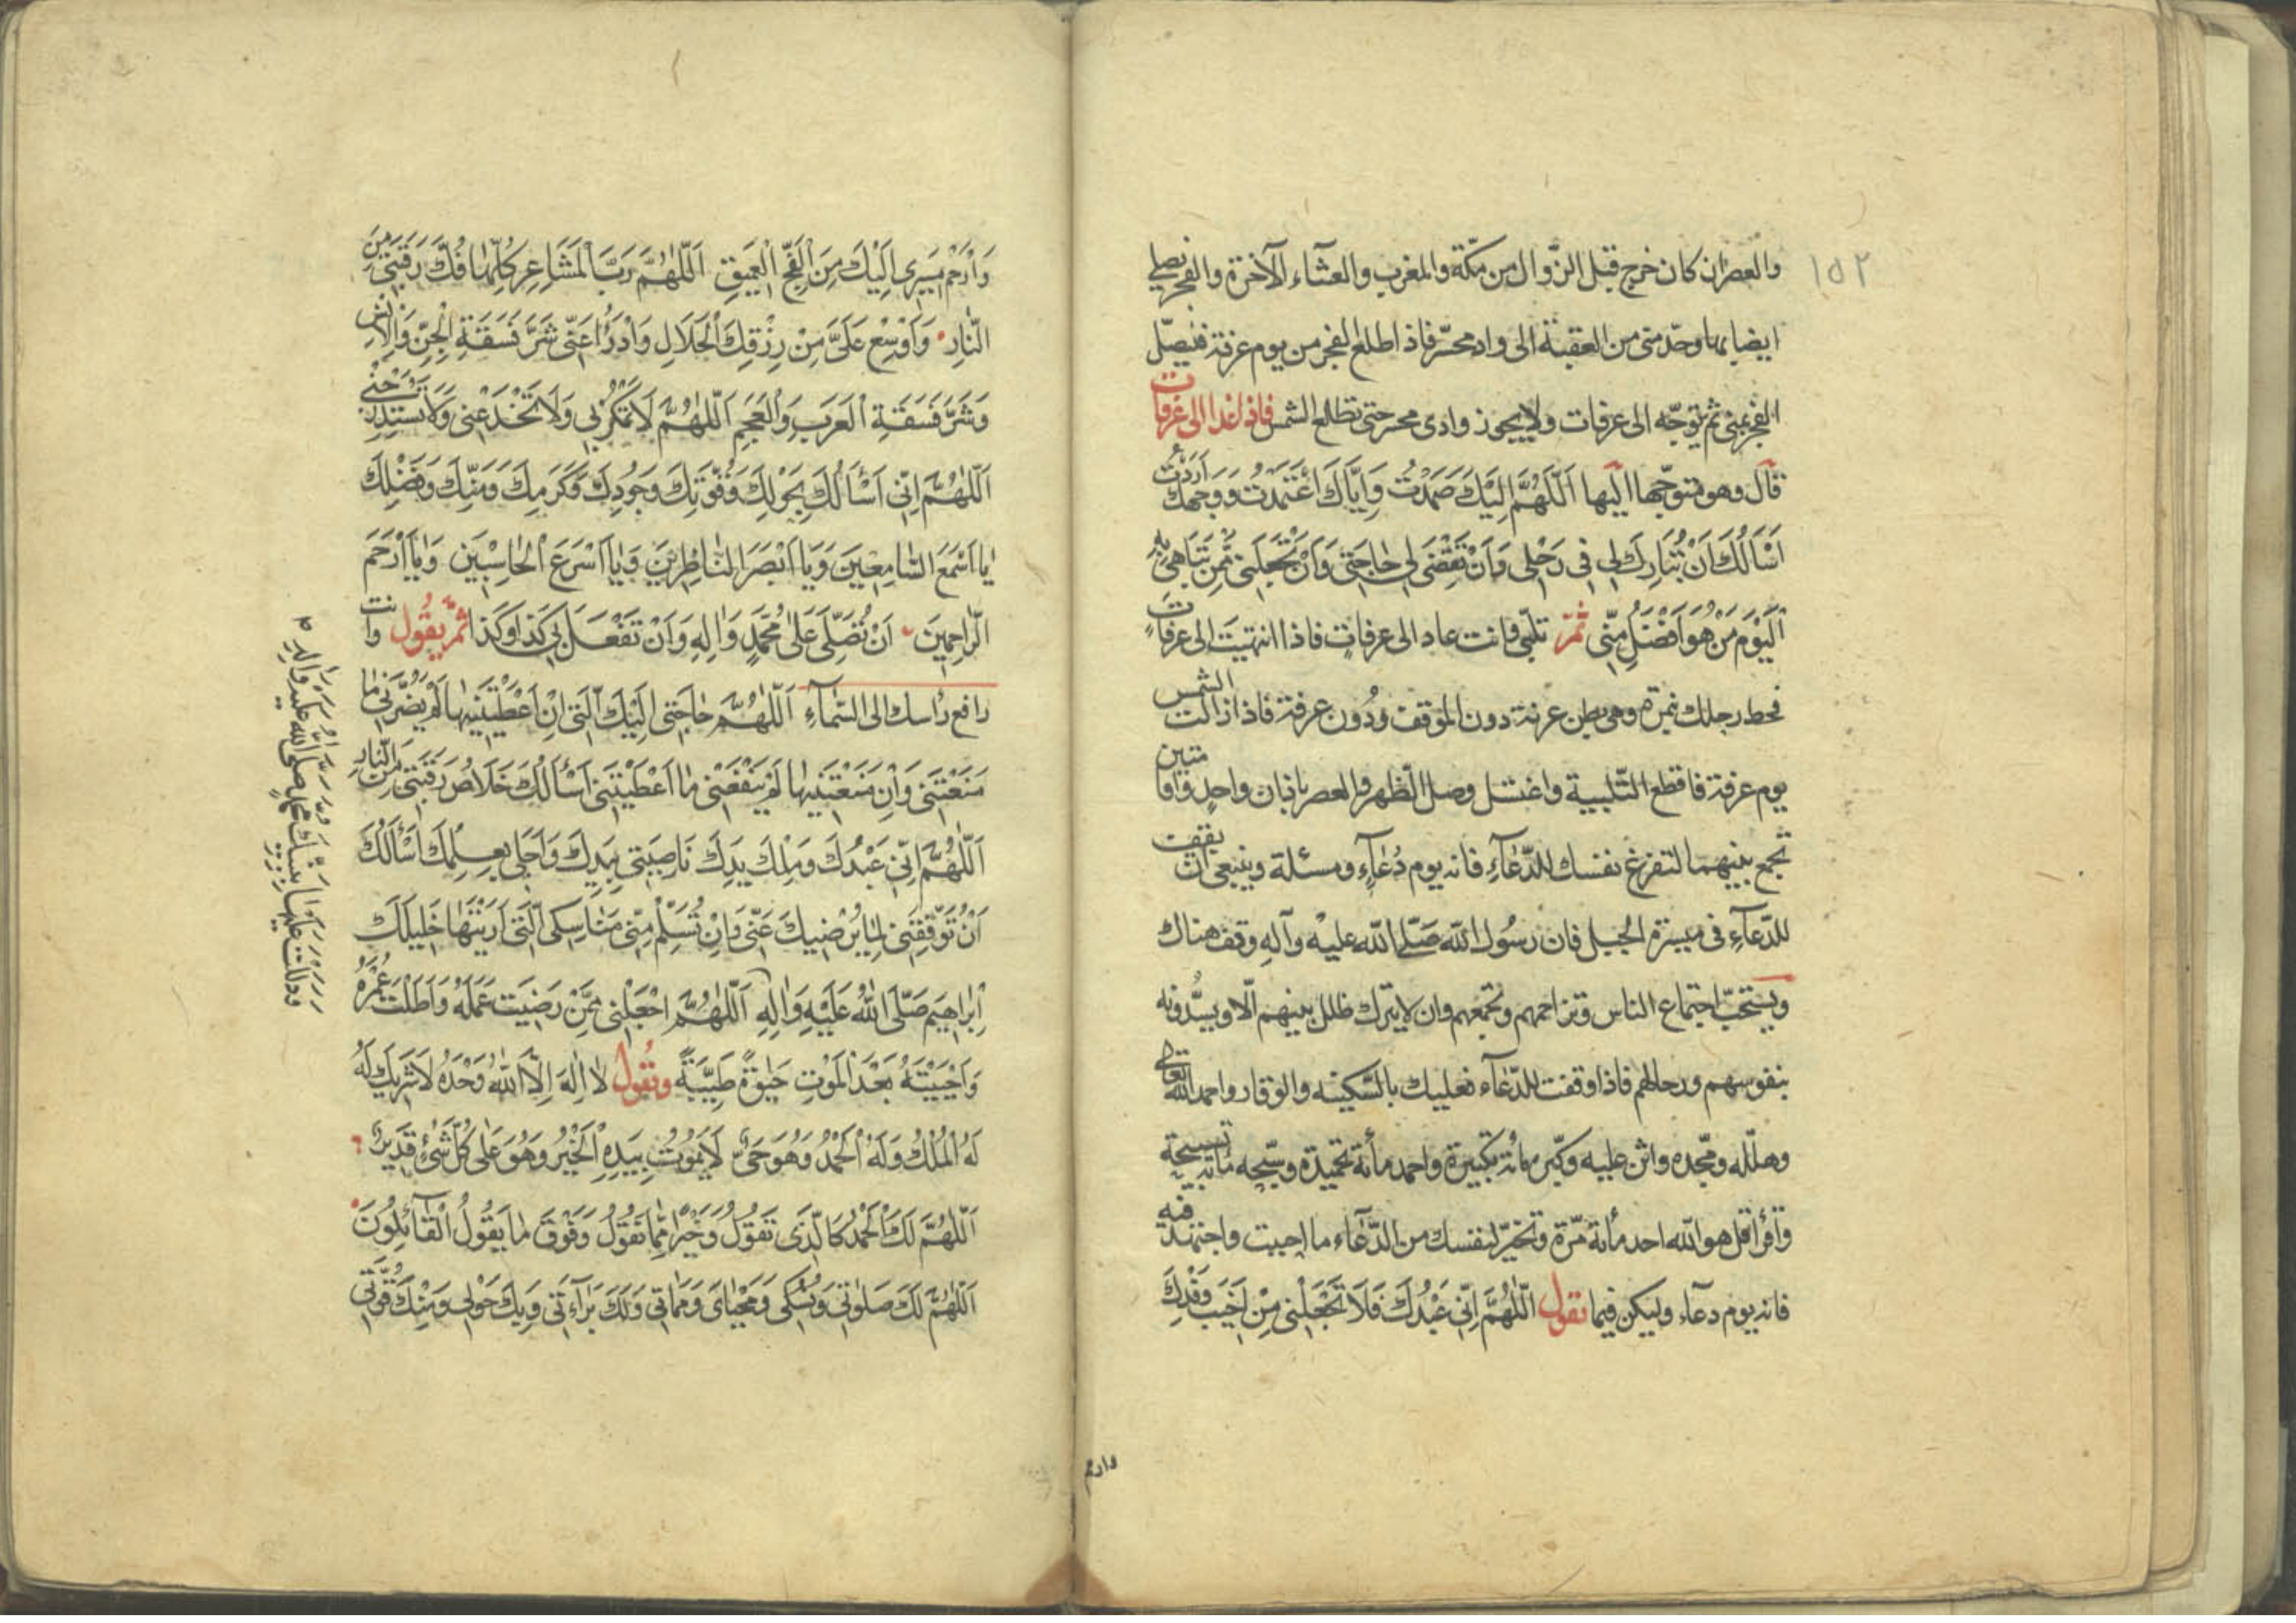 ١٥٢
والعصر ان كان خرج قبل الزوال من مكّة والمغرب والعشاء الآخرة والفجر يصلي
ايضا بها وحدّ منى من العقبة الى واد محسّر فاذا طلع الفجر من يوم عرفة فيصلّ
الفجر بمنى ثم يتوجّه الى عرفات ولا يجوز وادى محسر حتى تطلع الشمس فاذا غدا الى عرفات
قال وهو متوجّها اليها اَللّٰهُمَّ اِلَيْكَ صَمَدْتُ وَاِيَّاكَ اعْتَمَدْتُ وَوَجْهَكَ اَرَدْتُ
اَسْأَلُكَ اَنْ تُبَارِكَ لِي فِي رَحْلِي وَاَنْ تَقْضِيَ لِي حَاجَتِي وَاَنْ تَجْعَلَنِي مِمَّنْ تُبَاهِي بِهِ
اَلْيَوْمَ مَنْ هُوَ اَفْضَلُ مِنِّي ثُمَّ تلبّى وانت عاد الى عرفات فاذا انتهيت الى عرفات
فحط رحلك بنمرة وهى بطن عرنة دون الموقف ودُون عرفة فاذا زالت الشمس
يوم عرفة فاقطع التّلبية واغتسل وصل الظهر والعصر باذان واحد واقامتين
تجمع بينهما لتفرغ نفسك للدّعآء فانه يوم دُعآء ومسئلة وينبغى ان يقف
للدّعآء فى ميسرة الجبل فان رسُول الله صَلّى الله عليْه وآلهِ وقف هناك
ويستحبّ اجتماع الناس وتزاحمهم وتجمّعهم وان لا يترك خلل بينهم الّا ويسُّدونه
بنفوسهم ورحالهم فاذا وقفت للدّعآء فعليك بالسّكينه والوقار واحمد الله تعالى
وهلّله ومجّده واثن عليه وكبّر مأة تكبيرة واحمد مأة تحميدة وسبّحه مأة تسبيحة
واقرا قل هو الله احد مأة مرّة وتخيّر لنفسك من الدّعآء ما احببت واجتهد فيه
فانه يوم دعآء وليكن فيما تقول اَللّٰهُمَّ اِنِّي عَبْدُكَ فَلَا تَجْعَلْنِي مِنْ اَخْيَبِ وَفْدِكَ
وارحم
وَارْحَمْ مَسِيرِي اِلَيْكَ مِنَ الْفَجِّ الْعَمِيقِ اَللّٰهُمَّ رَبَّ الْمَشَاعِرِ كُلِّهَا فُكَّ رَقَبَتِي مِنَ
النَّارِ وَاَوْسِعْ عَلَيَّ مِنْ رِزْقِكَ الْحَلَالِ وَادْرَأْ عَنِّي شَرَّ فَسَقَةِ الْجِنِّ وَالْاِنْسِ
وَشَرَّ فَسَقَةِ الْعَرَبِ وَالْعَجَمِ اَللّٰهُمَّ لَا تَمْكُرْ بِي وَلَا تَخْدَعْنِي وَلَا تَسْتَدْرِجْنِي
اَللّٰهُمَّ اِنِّي اَسْأَلُكَ بِحَوْلِكَ وَقُوَّتِكَ وَجُودِكَ وَكَرَمِكَ وَمَنِّكَ وَفَضْلِكَ
يَا اَسْمَعَ السَّامِعِينَ وَيَا اَبْصَرَ النَّاظِرِينَ وَيَا اَسْرَعَ الْحَاسِبِينَ وَيَا اَرْحَمَ
الرَّاحِمِينَ اَنْ تُصَلِّيَ عَلَى مُحَمَّدٍ وَآلِهِ وَاَنْ تَفْعَلَ بِي كَذَا وَكَذَا ثُمَّ يَقُول وانت
رافع رأسك الى السّماءِ اَللّٰهُمَّ حَاجَتِي اِلَيْكَ الَّتِي اِنْ اَعْطَيْتَنِيهَا لَمْ يَضُرَّنِي مَا
مَنَعْتَنِي وَاِنْ مَنَعْتَنِيهَا لَمْ يَنْفَعْنِي مَا اَعْطَيْتَنِي اَسْأَلُكَ خَلَاصَ رَقَبَتِي مِنَ النَّارِ
اَللّٰهُمَّ اِنِّي عَبْدُكَ وَمِلْكُ يَدِكَ نَاصِيَتِي بِيَدِكَ وَاَجَلِي بِعِلْمِكَ اَسْأَلُكَ
اَنْ تُوَفِّقَنِي لِمَا يُرْضِيكَ عَنِّي وَاَنْ تُسَلِّمَ مِنِّي مَنَاسِكِيَ الَّتِي اَرَيْتَهَا خَلِيلَكَ
اِبْرَاهِيمَ صَلَّى اللّٰهُ عَلَيْهِ وَآلِهِ اَللّٰهُمَّ اجْعَلْنِي مِمَّنْ رَضِيتَ عَمَلَهُ وَاَطَلْتَ عُمْرَهُ
وَاَحْيَيْتَهُ بَعْدَ الْمَوْتِ حَيٰوةً طَيِّبَةً وتقُول لَا اِلٰهَ اِلَّا اللّٰهُ وَحْدَهُ لَا شَرِيكَ لَهُ
لَهُ الْمُلْكُ وَلَهُ الْحَمْدُ وَهُوَ حَيٌّ لَا يَمُوتُ بِيَدِهِ الْخَيْرُ وَهُوَ عَلَى كُلِّ شَيْءٍ قَدِيرٌ
اَللّٰهُمَّ لَكَ الْحَمْدُ كَالَّذِي تَقُولُ وَخَيْرًا مِمَّا نَقُولُ وَفَوْقَ مَا يَقُولُ الْقَائِلُونَ
اَللّٰهُمَّ لَكَ صَلٰوتِي وَنُسُكِي وَمَحْيَايَ وَمَمَاتِي وَلَكَ بَرَاءَتِي وَبِكَ حَوْلِي وَمِنْكَ قُوَّتِي
وَدَلَلْتَ عَلَيْهَا نَبِيَّكَ مُحَمَّدًا صَلَّى اللّٰهُ عَلَيْهِ وَآلِهِ